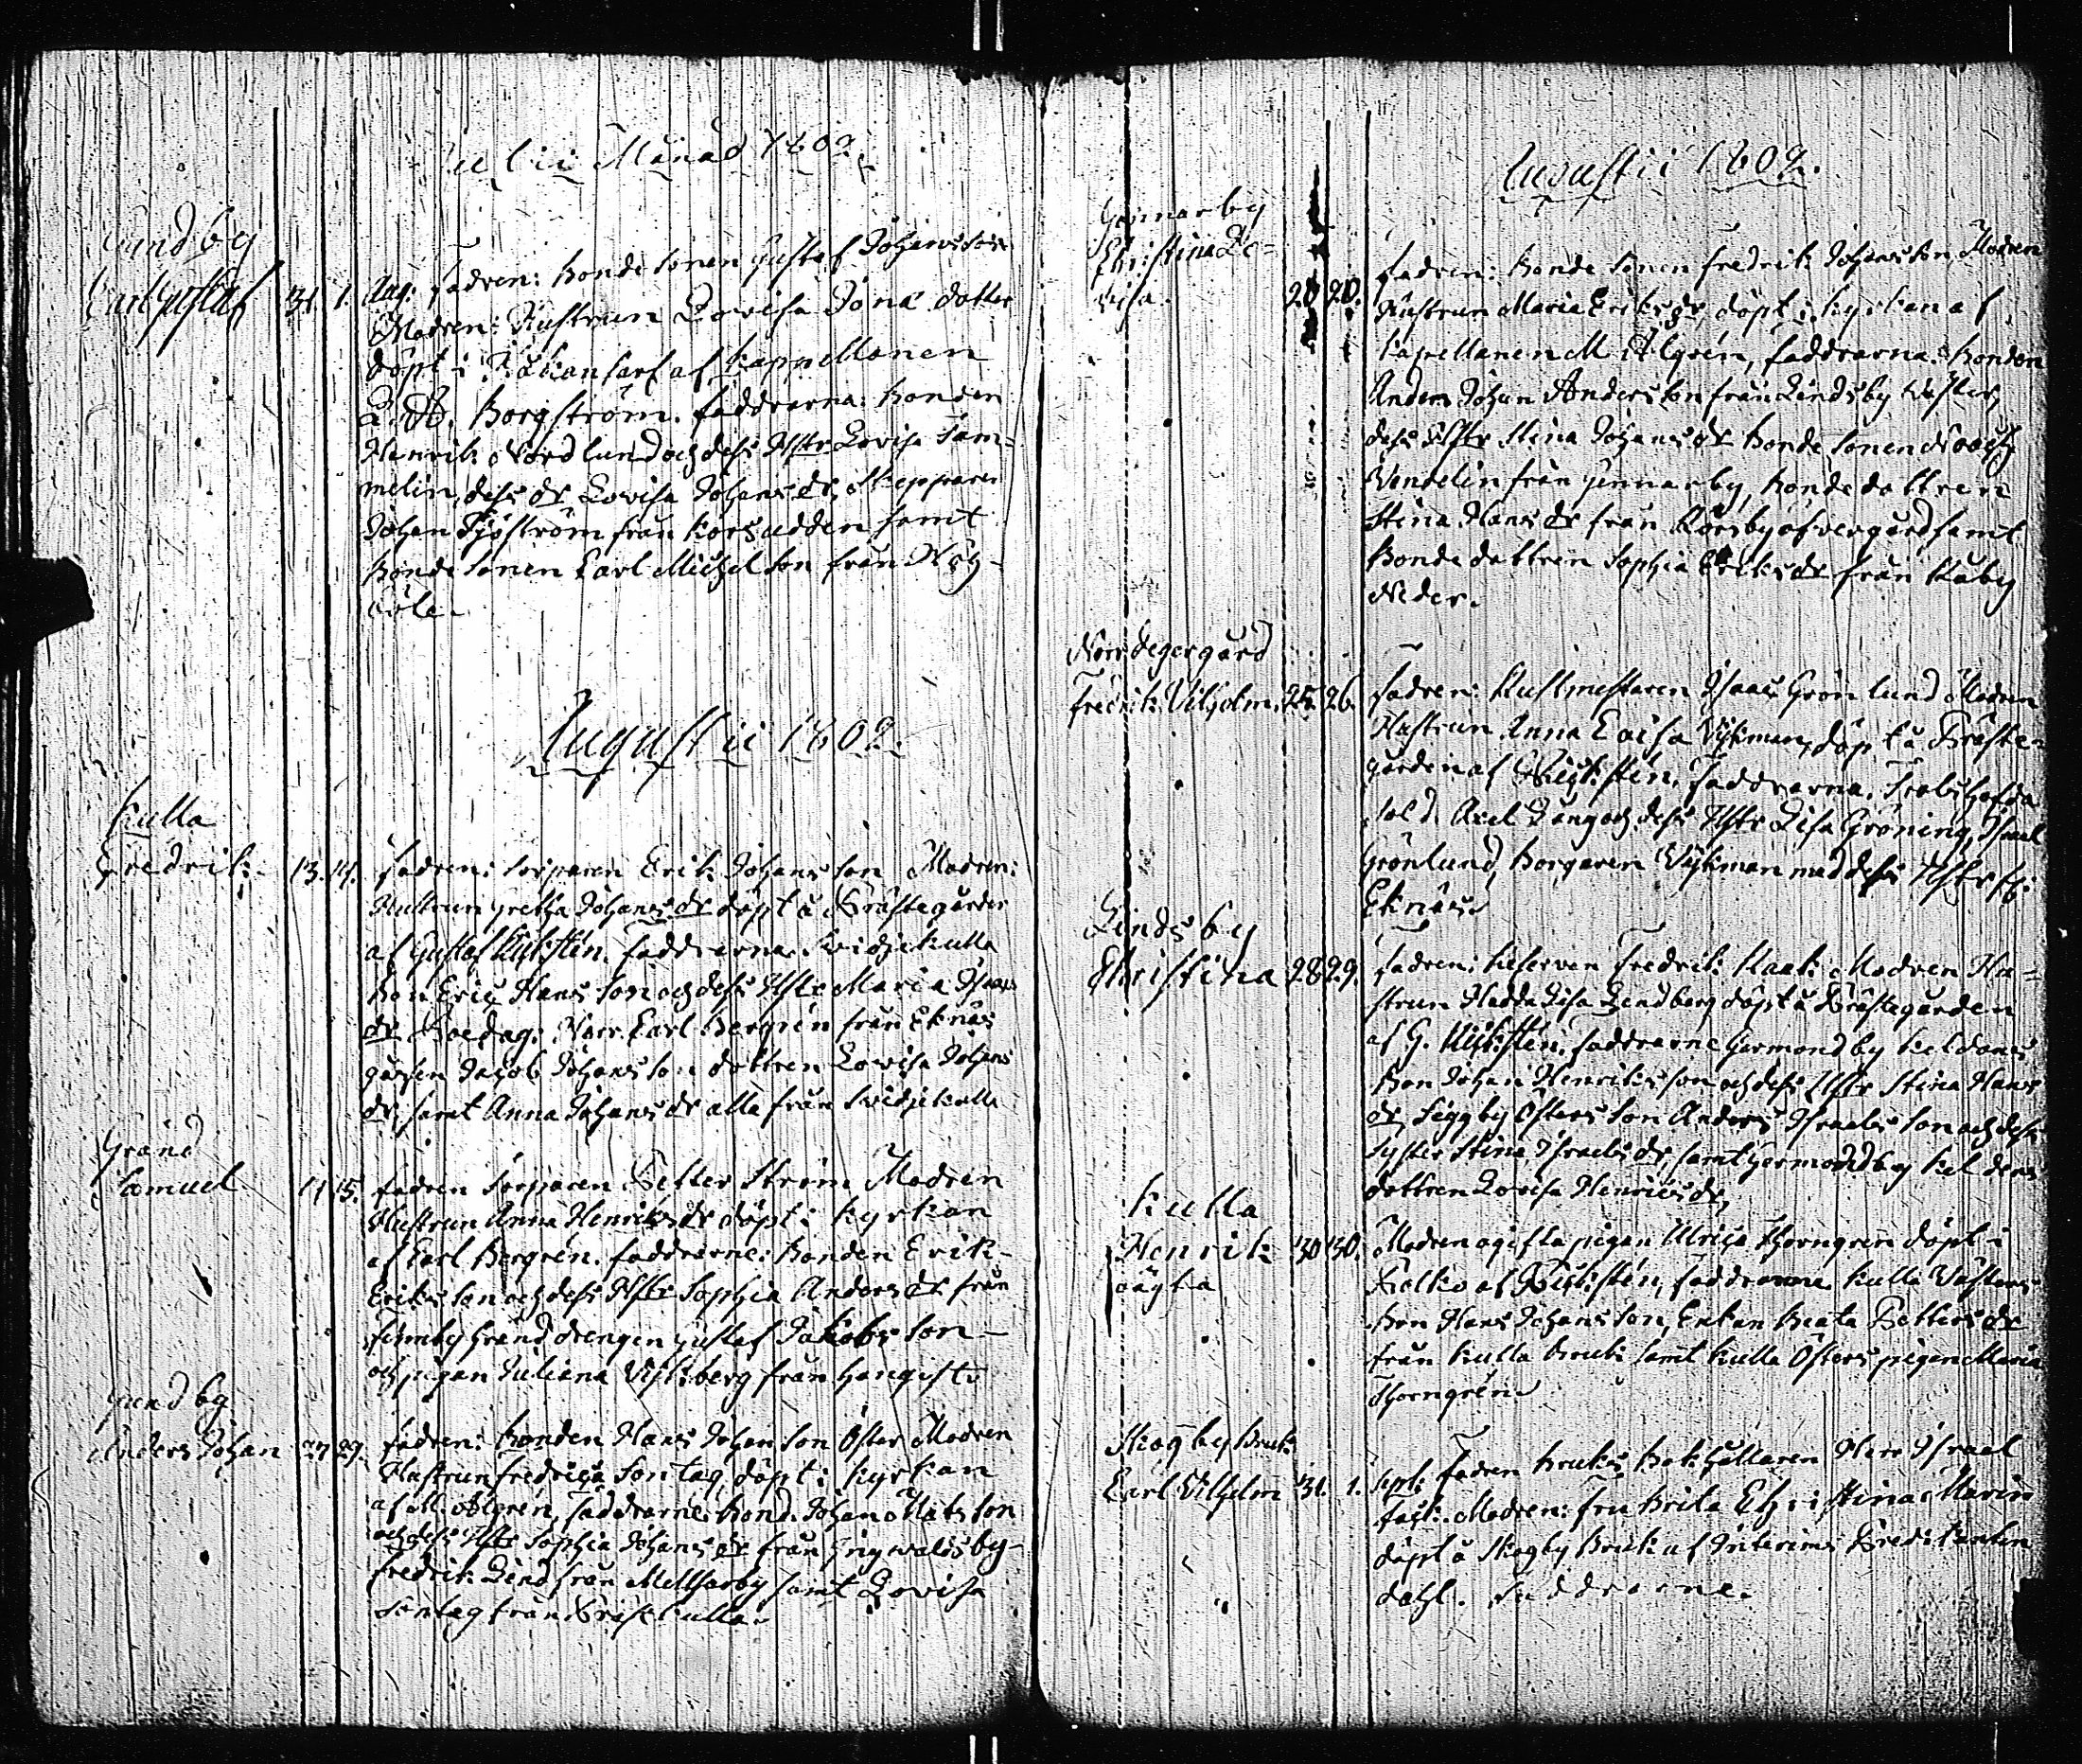 Julii Månad 1802.
Lundby
Carl Gustaf 31. 1. Aug. Fadren: bonde sonen Gustaf Johansson
Modren: Hustrun Lovisa Jona dotter
döpt i af Kappellanen
Borgström. faddrarna: bonden
Henrik Nordlund och dess Hstr Lovisa Tam-
melin, dess dr Lovisa Johans dr, Skepparen
Johan Sjöström från Korsudden samt
bonde sonen Carl Michelson från Näy-
Augustii 1802.
Kulla
Fredrik 13. 14. Fadren: torparen Erik Johansson Modren:
Hustrun Gretha Johans dr döpt å Prästegården
af Gustaf Kihlstén. Faddrarna: Svidjekulla
bon Eric Hansson och dess Hstr Maria Isaacs
dr Herr. Carl Bergren från Eknäs
gossen Jacob Johansson dottren Lovisa Johans
dr, samt Anna Johans dr alla från Svidjekulla
Gränd
Samuel 14 15. Fadren torparen Petter Ström Modren
Hustrun Anna Henriks dr döpt i kyrkan
af Carl Bergrén. faddrarne: bonden Erik
Eriksson och dess Hstr Sophia Anders dr från
Finnby Gränd drengen Gustaf Jakobsson
och pigan Juliana från
Gundby
Anders Johan 27 29. Fadren: bonden Hans Johansson Öster Modren
Hustrun Fredrica Sontag, döpt i kyrkan
af M. Algrén, Faddrarne: bond. Johan Matsson
och dess Hstr Sophia Johans dr från Grigwalsby
Fredrik Lind från Mellsarby samt Lovisa
Sontag från
Augustii 1802.
Gennarby
Christina Lo-
visa. 20 20. Fadren: bonde sonen Fredrik Johansson, Modren
Hustrun Maria Eriks dr, döpt i kyrkan af
Capellanen M Algrén, faddrarna: bonden
Anders Johan Andersson från Lindsby Wäster,
dess Hstr Stina Johans dr bonde sonen
Wendelin från Gennarby, bonde dottren
Stina Hans dr från öfvergård samt
Bonde dottren Sophia Eriks dr från Råby
Neder.
Norrbegergård
Fredrik Vilhelm. 25. 26. Fadren: Rustmestaren Isaac Grönlund Modren
Hustrun Anna Caisa Vikman, döpt å Präste-
gården af Kihlstén, Faddrarna.
Axel Lång och dess Hstr Lisa Gröning, Israel
Grönlund, borgaren Vikman med dess Hstr fr:
Ekenäs.
Lindsby
Christina 28 29. Fadren: Fredrik Kaak Modren Hu-
strun Hedda Lisa Lindberg döpt å Prästegården
af G. Kihlstén. faddrarne Germondby Keldans
Bon Johan Henriksson och dess Hstr Stina Hans
dr, Siggby Östers son Anders Israelsson och dess
syster Stina Israels dr, samt Germondby Keldans
dottren Lovisa Henrics dr,
Kulla
Henrik 30 30. Modren ogifta pigan Ulrica Thorngren döpt i
oägta Falko af Kihlstén, faddrarne Kulla Västers
bon Hans Johansson, Enkan Beata Petters dr
från Kulla bruk samt Kulla Östers pigan Maria
Thorngrén
Skogby Bruk
Carl Vilhelm 31. 1. Sept: Fadren bruks bokhållaren Herr Israel
Modren: fru Brita Christina Marin
döpt å Skogby Bruk af Interims Predikanten
dahl. Faddrarne.